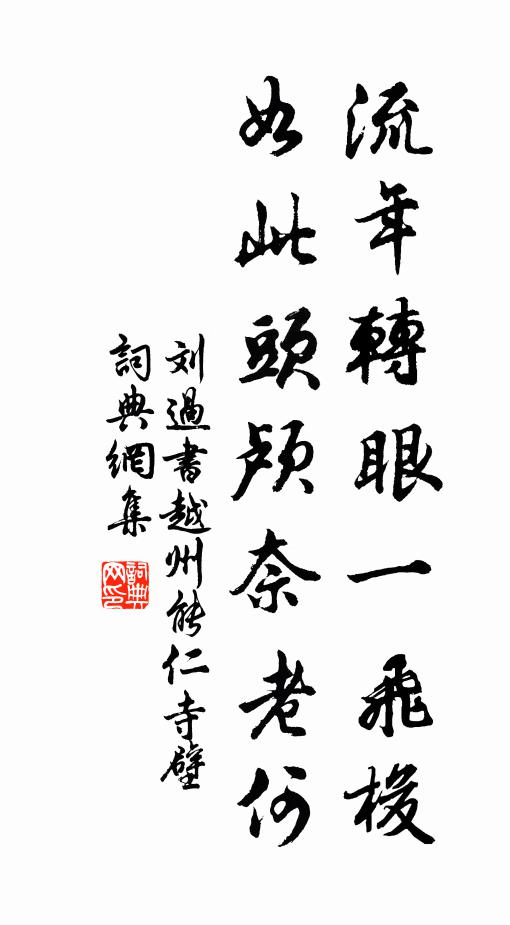 流年轉眼一飛梭
如此頭顱奈老何
刘過書越州能仁寺壁
詞典網集
詞典网印